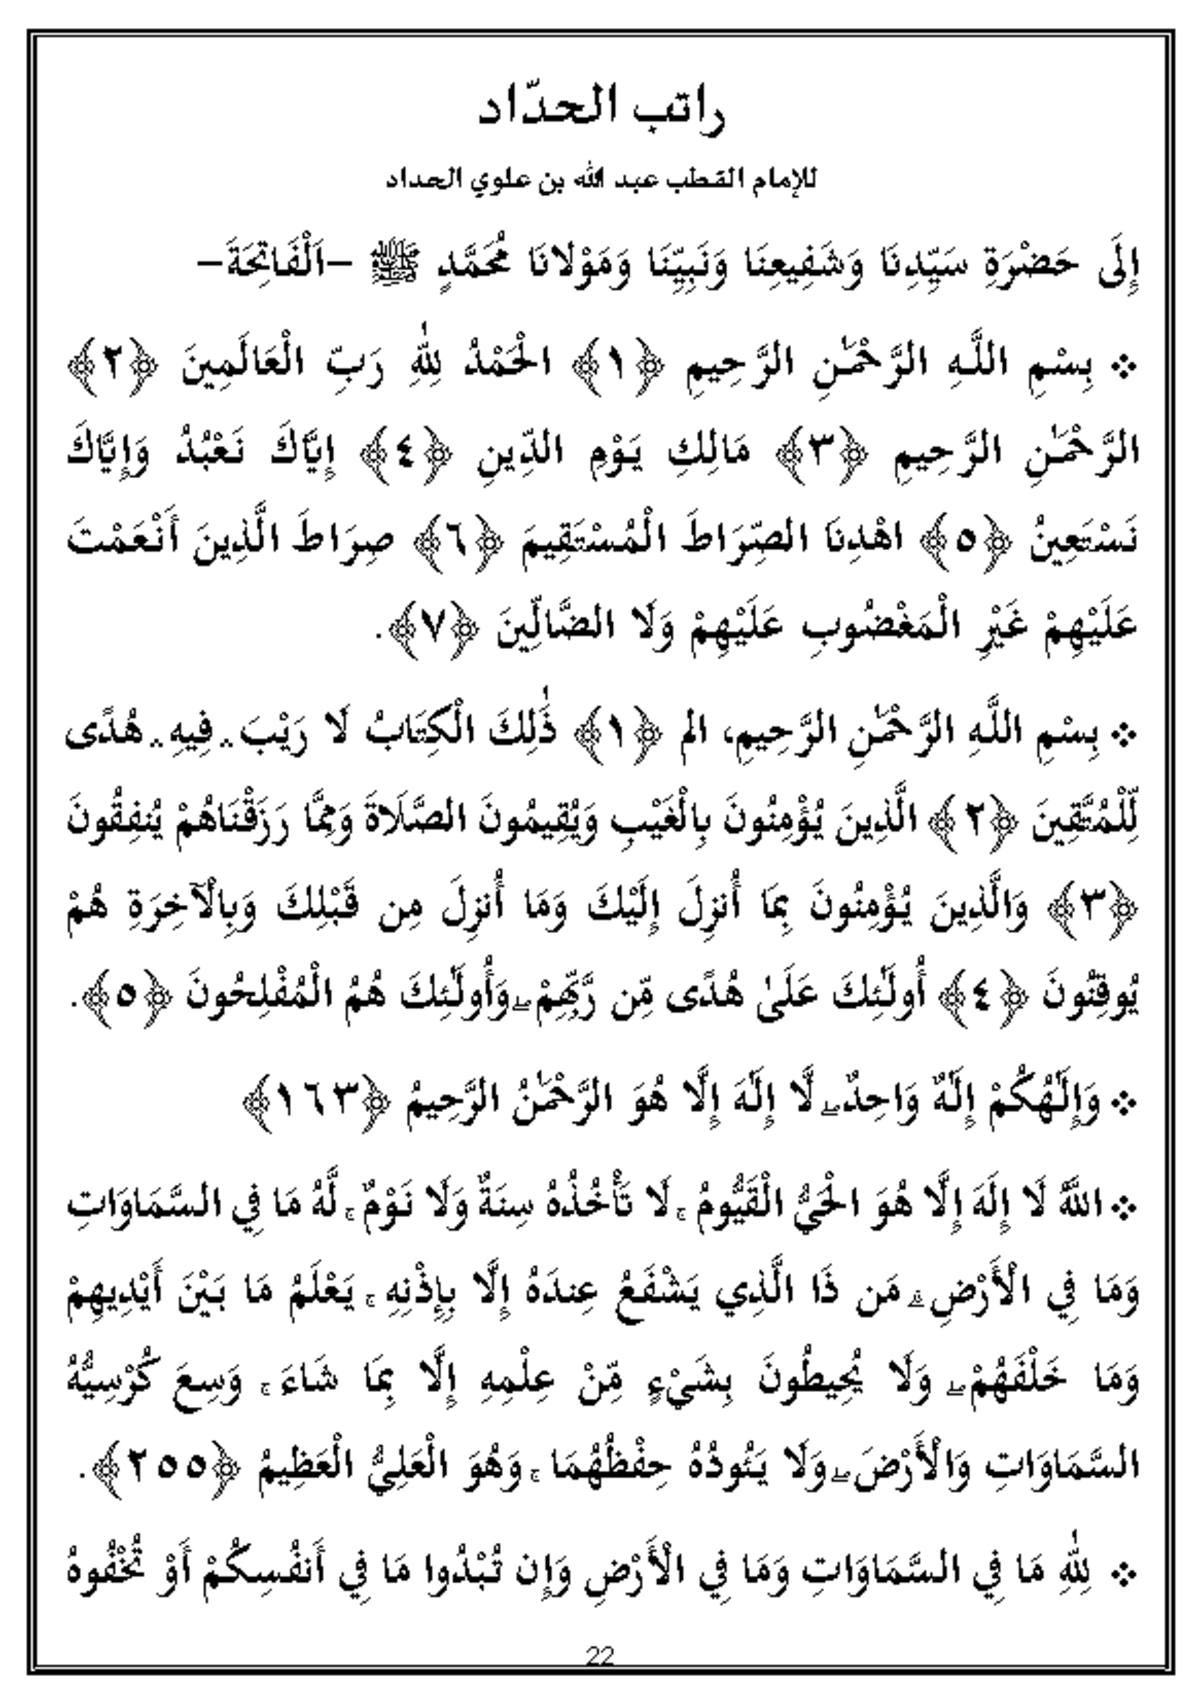 راتب الحدّاد
للإمام القطب عبد الله بن علوي الحداد
إِلَى حَضْرَةِ سَيِّدِنَا وَشَفِيعِنَا وَنَبِيِّنَا وَمَوْلانَا مُحَمَّدٍ ﷺ –اَلْفَاتِحَةَ–
❖ بِسْمِ اللَّـهِ الرَّحْمَـٰنِ الرَّحِيمِ ﴿١﴾ الْحَمْدُ لِلَّهِ رَبِّ الْعَالَمِينَ ﴿٢﴾
الرَّحْمَـٰنِ الرَّحِيمِ ﴿٣﴾ مَالِكِ يَوْمِ الدِّينِ ﴿٤﴾ إِيَّاكَ نَعْبُدُ وَإِيَّاكَ
نَسْتَعِينُ ﴿٥﴾ اهْدِنَا الصِّرَاطَ الْمُسْتَقِيمَ ﴿٦﴾ صِرَاطَ الَّذِينَ أَنْعَمْتَ
عَلَيْهِمْ غَيْرِ الْمَغْضُوبِ عَلَيْهِمْ وَلَا الضَّالِّينَ ﴿٧﴾.
❖ بِسْمِ اللَّهِ الرَّحْمَٰنِ الرَّحِيمِ، الم ﴿١﴾ ذَٰلِكَ الْكِتَابُ لَا رَيْبَ ۛ فِيهِ ۛ هُدًى
لِّلْمُتَّقِينَ ﴿٢﴾ الَّذِينَ يُؤْمِنُونَ بِالْغَيْبِ وَيُقِيمُونَ الصَّلَاةَ وَمِمَّا رَزَقْنَاهُمْ يُنفِقُونَ
﴿٣﴾ وَالَّذِينَ يُؤْمِنُونَ بِمَا أُنزِلَ إِلَيْكَ وَمَا أُنزِلَ مِن قَبْلِكَ وَبِالْآخِرَةِ هُمْ
يُوقِنُونَ ﴿٤﴾ أُولَٰئِكَ عَلَىٰ هُدًى مِّن رَّبِّهِمْ ۖ وَأُولَٰئِكَ هُمُ الْمُفْلِحُونَ ﴿٥﴾.
❖ وَإِلَٰهُكُمْ إِلَٰهٌ وَاحِدٌ ۖ لَّا إِلَٰهَ إِلَّا هُوَ الرَّحْمَٰنُ الرَّحِيمُ ﴿١٦٣﴾
❖ اللَّهُ لَا إِلَهَ إِلَّا هُوَ الْحَيُّ الْقَيُّومُ ۚ لَا تَأْخُذُهُ سِنَةٌ وَلَا نَوْمٌ ۚ لَهُ مَا فِي السَّمَاوَاتِ
وَمَا فِي الْأَرْضِ ۗ مَن ذَا الَّذِي يَشْفَعُ عِندَهُ إِلَّا بِإِذْنِهِ ۚ يَعْلَمُ مَا بَيْنَ أَيْدِيهِمْ
وَمَا خَلْفَهُمْ ۖ وَلَا يُحِيطُونَ بِشَيْءٍ مِّنْ عِلْمِهِ إِلَّا بِمَا شَاءَ ۚ وَسِعَ كُرْسِيُّهُ
السَّمَاوَاتِ وَالْأَرْضَ ۖ وَلَا يَئُودُهُ حِفْظُهُمَا ۚ وَهُوَ الْعَلِيُّ الْعَظِيمُ ﴿٢٥٥﴾.
❖ لِلَّهِ مَا فِي السَّمَاوَاتِ وَمَا فِي الْأَرْضِ وَإِن تُبْدُوا مَا فِي أَنفُسِكُمْ أَوْ تُخْفُوهُ
22